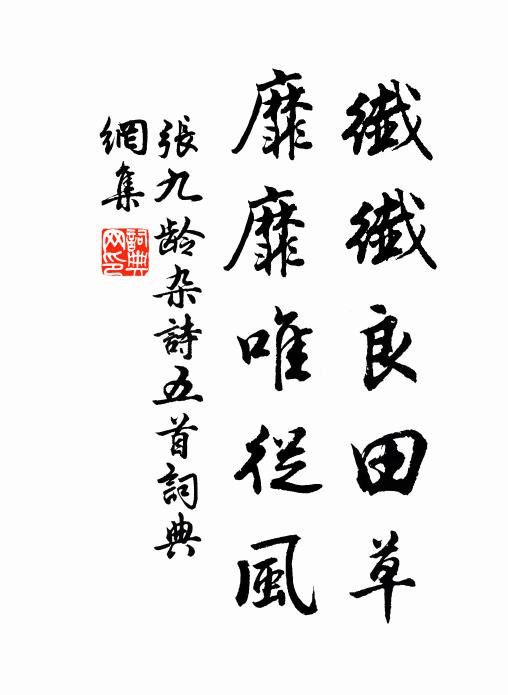 纖纖良田草
靡靡唯從風
張九龄杂詩五首詞典
網集
詞典
网印